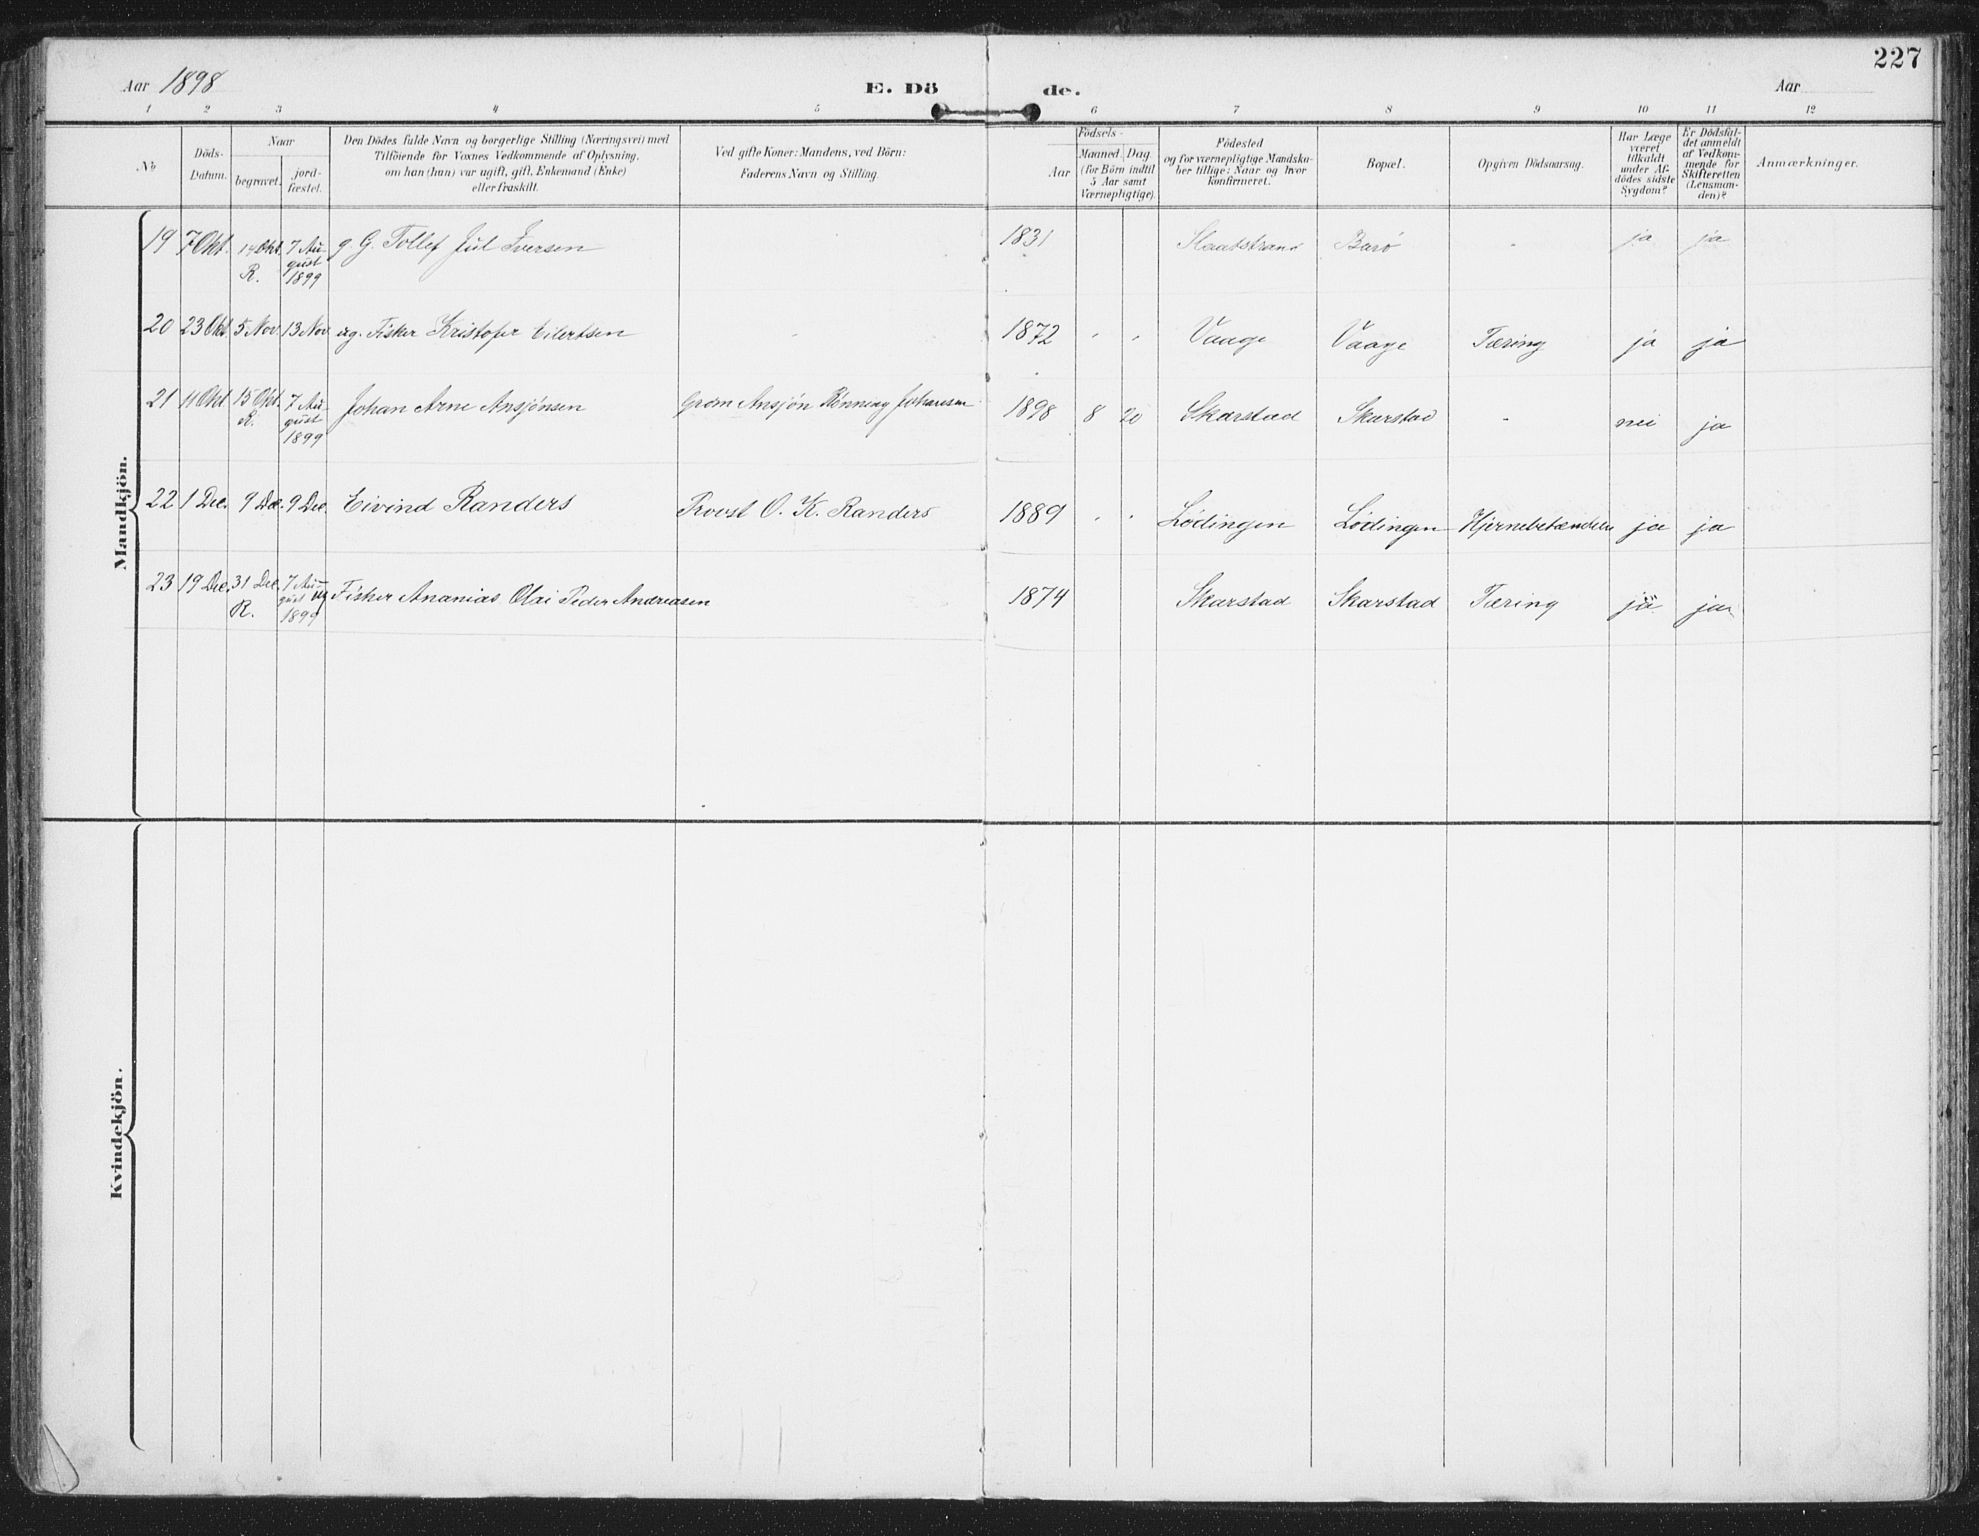 227
Aar 1898 E. Dö de. Aar
1 2 3 4 5 6 7 8 9 10 11 12
No
Döds-
Datum.
Naar
begravet.
jord-
fæstet.
Den Dödes fulde Navn og borgerlige Stilling (Næringsvei) med
Tilföiende for Voxnes Vedkommende af Oplysning,
om han (hun) var ugift, gift, Enkemand (Enke)
eller fraskilt.
Ved gifte Koner: Mandens, ved Börn:
Faderens Navn og Stilling.
Födsels-
Aar
Maaned. Dag
(for Börn indtil
5 Aar samt
Værnepligtige).
Födested
og for værnepligtige Mandska-
ber tillige: Naar og hvor
konfirmeret.
Bopæl.
Opgiven Dödsaarsag.
Har Læge
været
tilkaldt
under Af-
dödes sidste
Sygdom?
Er Dödsfal-
det anmeldt
af Vedkom-
mende for
Skifteretten
(Lensman-
den)?
Anmærkninger.
Mandkjön.
19 7 Okt. 14 Okt. R. 7 Au-
gust
1899 g. G. Tollef Jul Iversen 1831 Barø - ja ja
20 23 Okt. 5 Nov. 13 Nov ug. Fisker Kristofer Eilertsen - 1872 " " Vaage Vaage Tæring ja ja
21 11 Okt 15 Okt. R. 7 Au-
gust
1899 Johan Arne Ansjønsen Grdm Ansjøn Rönning Johansen 1898 8 20 Skarstad Skarstad - nei ja
22 1 Dec. 9 Dec. 9 Dec. Eivind Randers Provst O. K. Randers 1889 " " Lødingen Lødingen Hjernebetændelse ja ja
23 19 Dec. 31 Dec. R. 7 Au-
gust
1899 Fisker Ananias Olai Peder Andreasen 1874 Skarstad Skarstad Tæring ja ja
Kvindekjön.